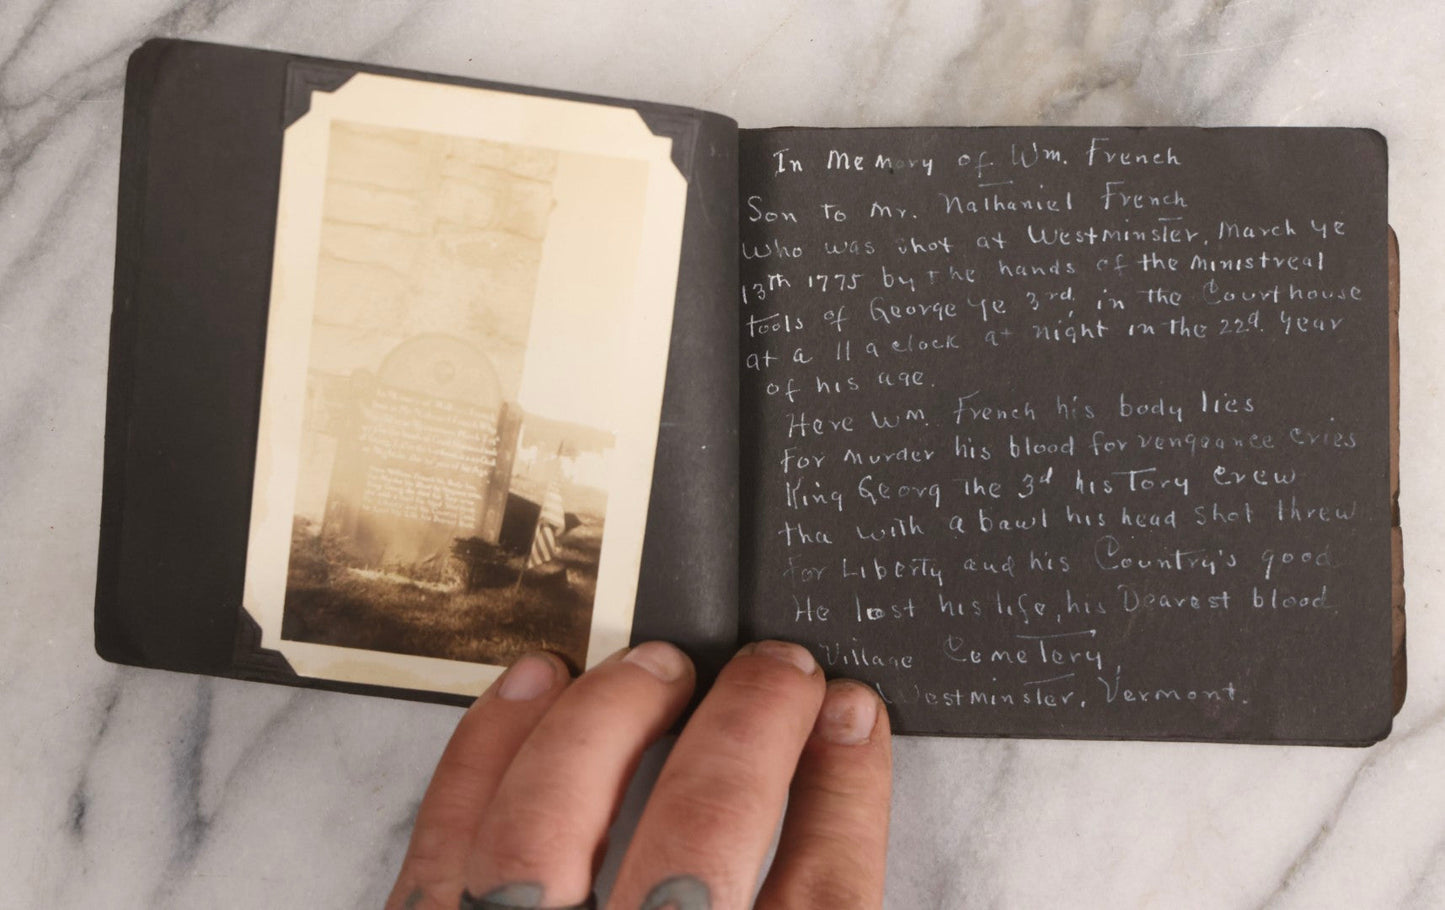 In Memory of Wm. French
Son to Mr. Nathaniel French
Who was shot at Westminster, March ye
13th 1775 by the hands of the Ministreal
tools of George ye 3rd, in the Courthouse
at a 11 a clock at night in the 22d. year
of his age.
Here Wm. French his body lies
For murder his blood for vengeance cries
King Georg the 3d his Tory crew
tha with a bawl his head shot threw
For Liberty and his Country's good
He lost his life, his Dearest blood.
Village Cemetery,
Westminster, Vermont.